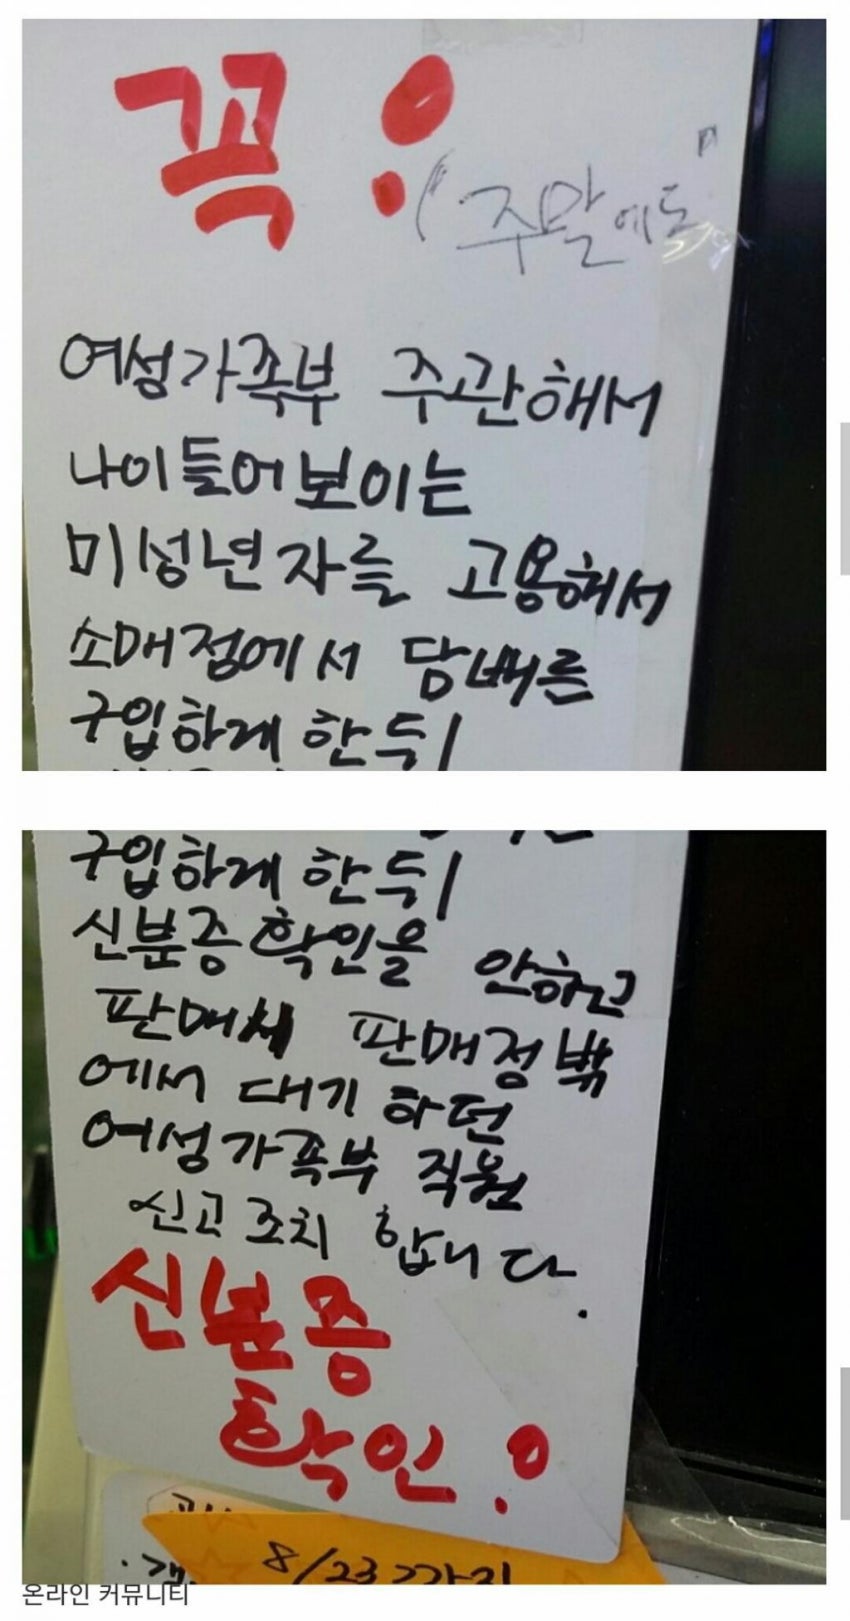 꼭!
(주말에도
여성가족부 주관해서
나이들어보이는
미성년자를 고용해서
소매점에서 담배를
구입하게 한 뒤
구입하게 한 뒤
신분증확인을 안하고
판매시 판매점 밖
에서 대기 하던
여성가족부 직원
신고 조치 합니다.
신분증
확인!
8/23
온라인 커뮤니티